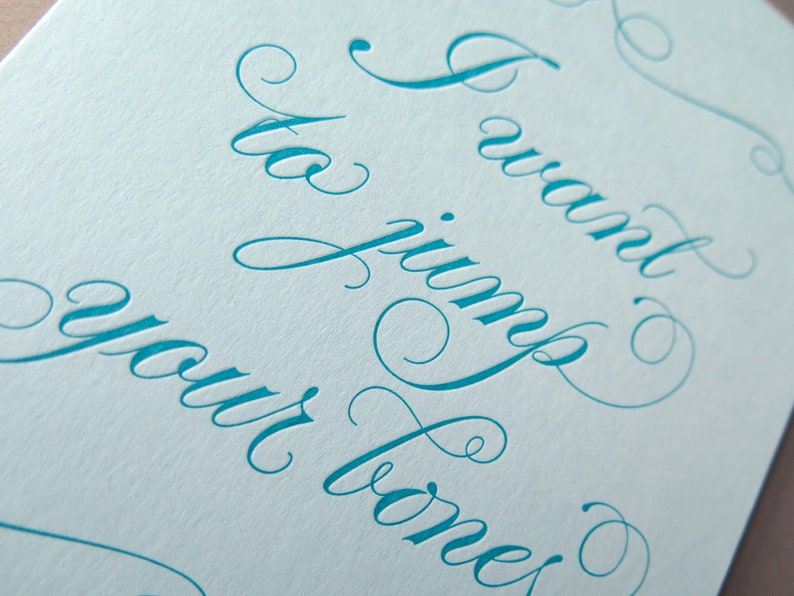 I want
to jump
your bones